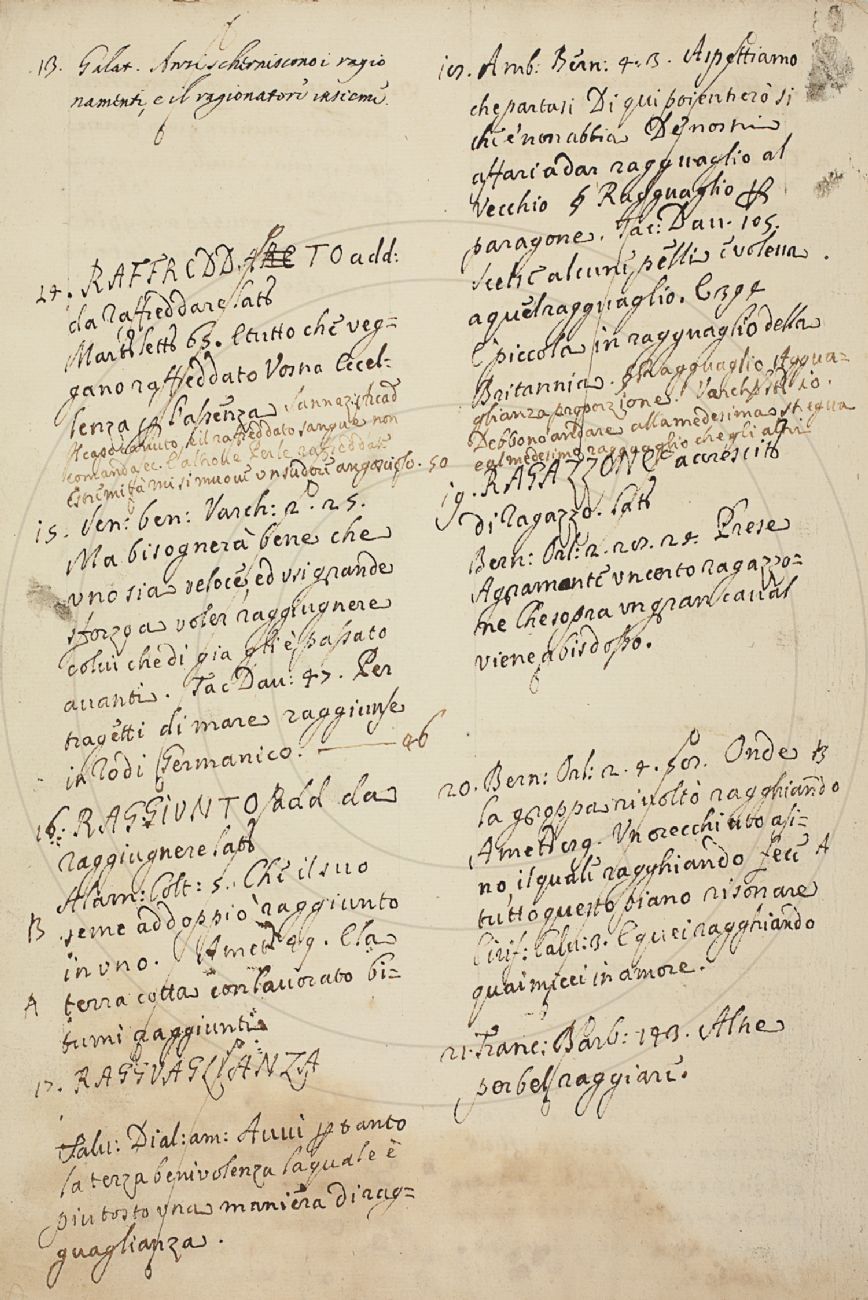 13. Galat. Anzi scherniscono i ragio
namenti, e il ragionatore insieme.
14. RAFFREDDATO add:
da Raffreddare lat̃
Mart: lett̃ 65. E tutto che veg=
gano raffreddato Vostra Eccel-
lenza ꝑ l'assenza Sannaz:
canuto, e il raffreddato sangue non
comanda ec. raffreddate
estremità mi si muove un sudore angoscioso. 50
15. Sen: ben: Varch: 2. 25.
Ma bisognerà bene che
uno sia veloce, ed usi grande
sforzo a voler raggiugnere
colui che di già gli è passato
avanti. Tac Dav: 47. Per
tragetti di mare raggiunse
in Rodi Germanico. 46
16. RAGGIUNTO Add da
raggiugnere lat̃
Alam: Colt: 5. Che il suo
B seme addoppiò raggiunto
in uno. Amet̃ 49. E la
A terra cotta con lavorato bi-
tumi raggiunti
17. RAGGUAGLIANZA
Salv: Dial: am: Avvi ꝑ tanto
la terza benivolenza la quale è
piutosto una maniera di rag=
guaglianza.
18. Amb: Bern: 4. 3. Aspettiamo
che partasi Di qui poi entrerò si
ch'è non abbia De nostri
affari a dar ragguaglio al
Vecchio § Ragguaglio ꝑ
paragone. Tac: Dav. 105.
Scelse alcune pelli e voleva
a quel ragguaglio. E 394
E piccola in ragguaglio della
Britannia. § Ragguaglio Aggua=
glianza proporzione. Varch: st: 10.
Debbono andare alla medesima stregua
e al medesimo ragguaglio che gli altri
19. RAGAZZONE accrescit̃
di Ragazzo. lat̃
Bern: Orl: 2. 28. 24. Prese
Agramante un certo ragazzo=
ne Che sopra un gran caval
viene a bisdosso.
20. Bern: Orl: 2. 4. 58. Onde B
la groppa rivoltò ragghiando
Amet̃ 89. Un orecchiuto asi=
no il quale ragghiando fece A
tutto questo piano risonare
Cirif: Calv: 3. E quei ragghiando
quai micci in amore.
21. Franc: Barb: 143. Alhe
per bel raggiare.